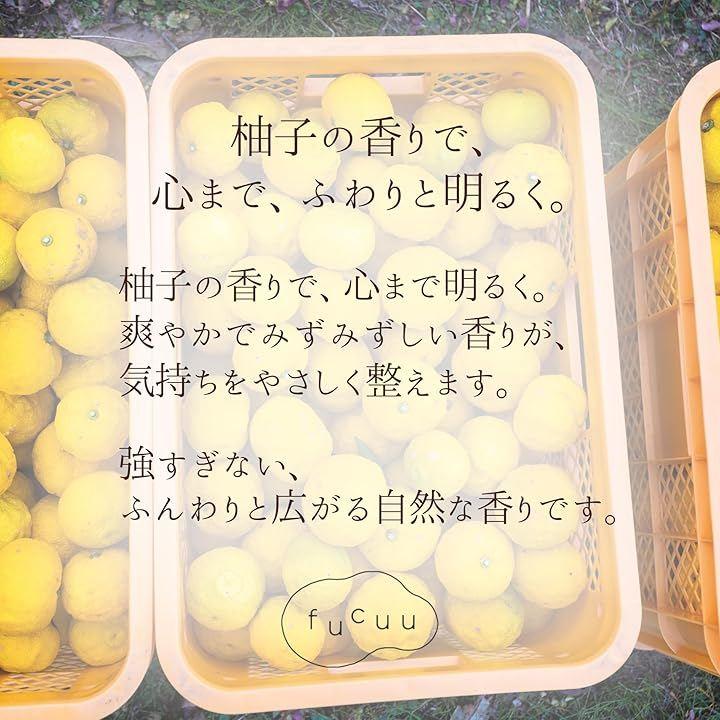 柚子の香りで、
心まで、ふわりと明るく。
柚子の香りで、心まで明るく。
爽やかでみずみずしい香りが、
気持ちをやさしく整えます。
強すぎない、
ふんわりと広がる自然な香りです。
fucuu